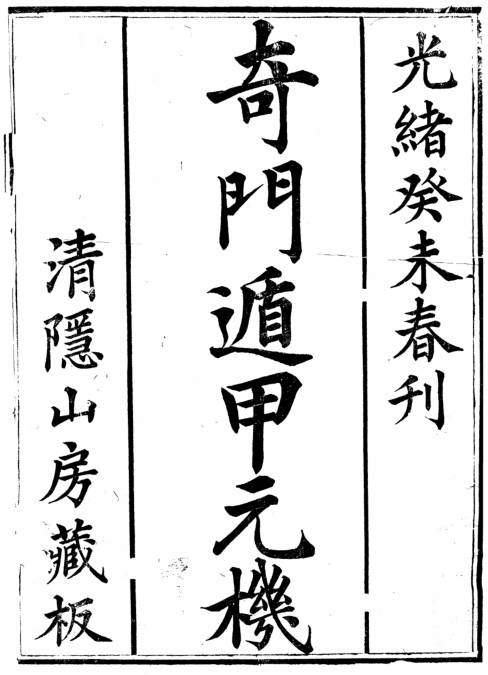 光緒癸未春刊
奇門遁甲元機
清隱山房藏板